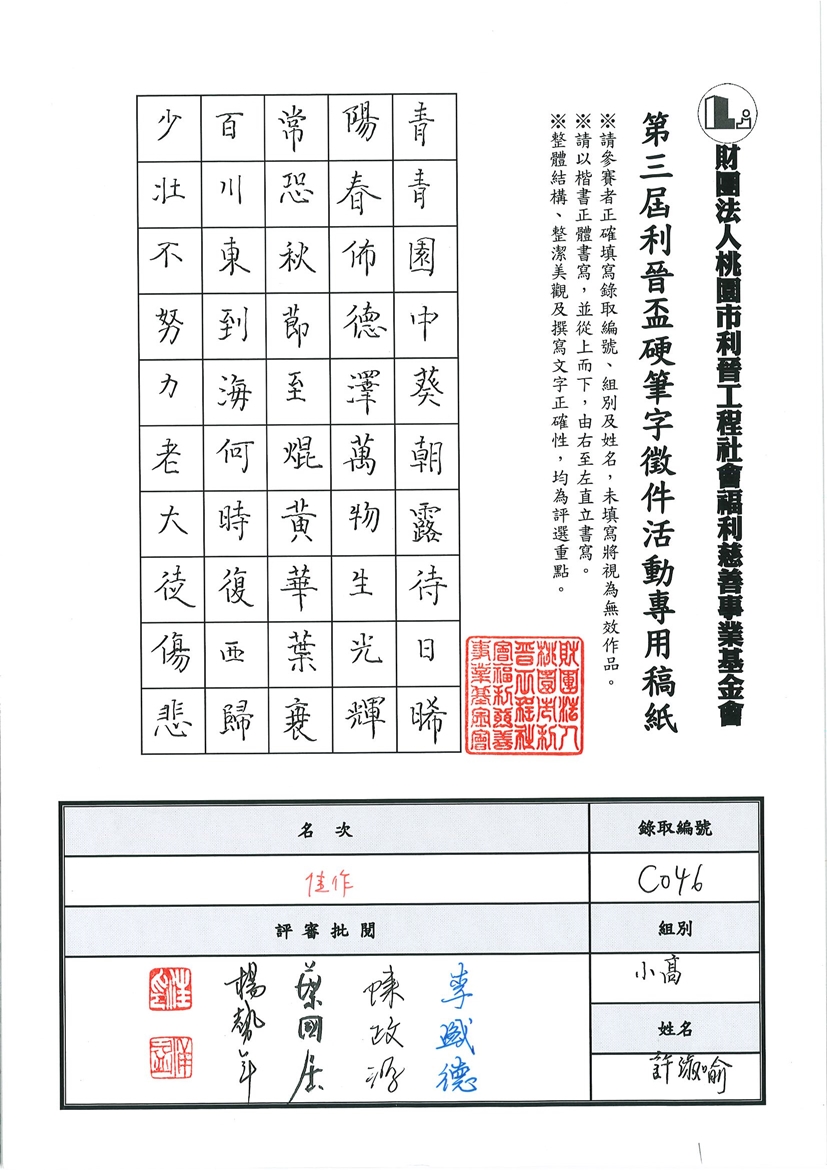 財團法人桃園市利晉工程社會福利慈善事業基金會
第三屆利晉盃硬筆字徵件活動專用稿紙
※請參賽者正確填寫錄取編號、組別及姓名，未填寫將視為無效作品。
※請以楷書正體書寫，並從上而下，由右至左直立書寫。
※整體結構、整潔美觀及撰寫文字正確性，均為評選重點。
青青園中葵朝露待日晞
陽春佈德澤萬物生光輝
常恐秋節至焜黃華葉衰
百川東到海何時復西歸
少壯不努力老大徒傷悲
財團法人
桃園市利
晉工程社
會福利慈善
事業基金會
錄取編號
C046
組別
小高
姓名
許淑喻
名次
佳作
評審批閱
李盛德
陳政源
蔡國
楊勢年